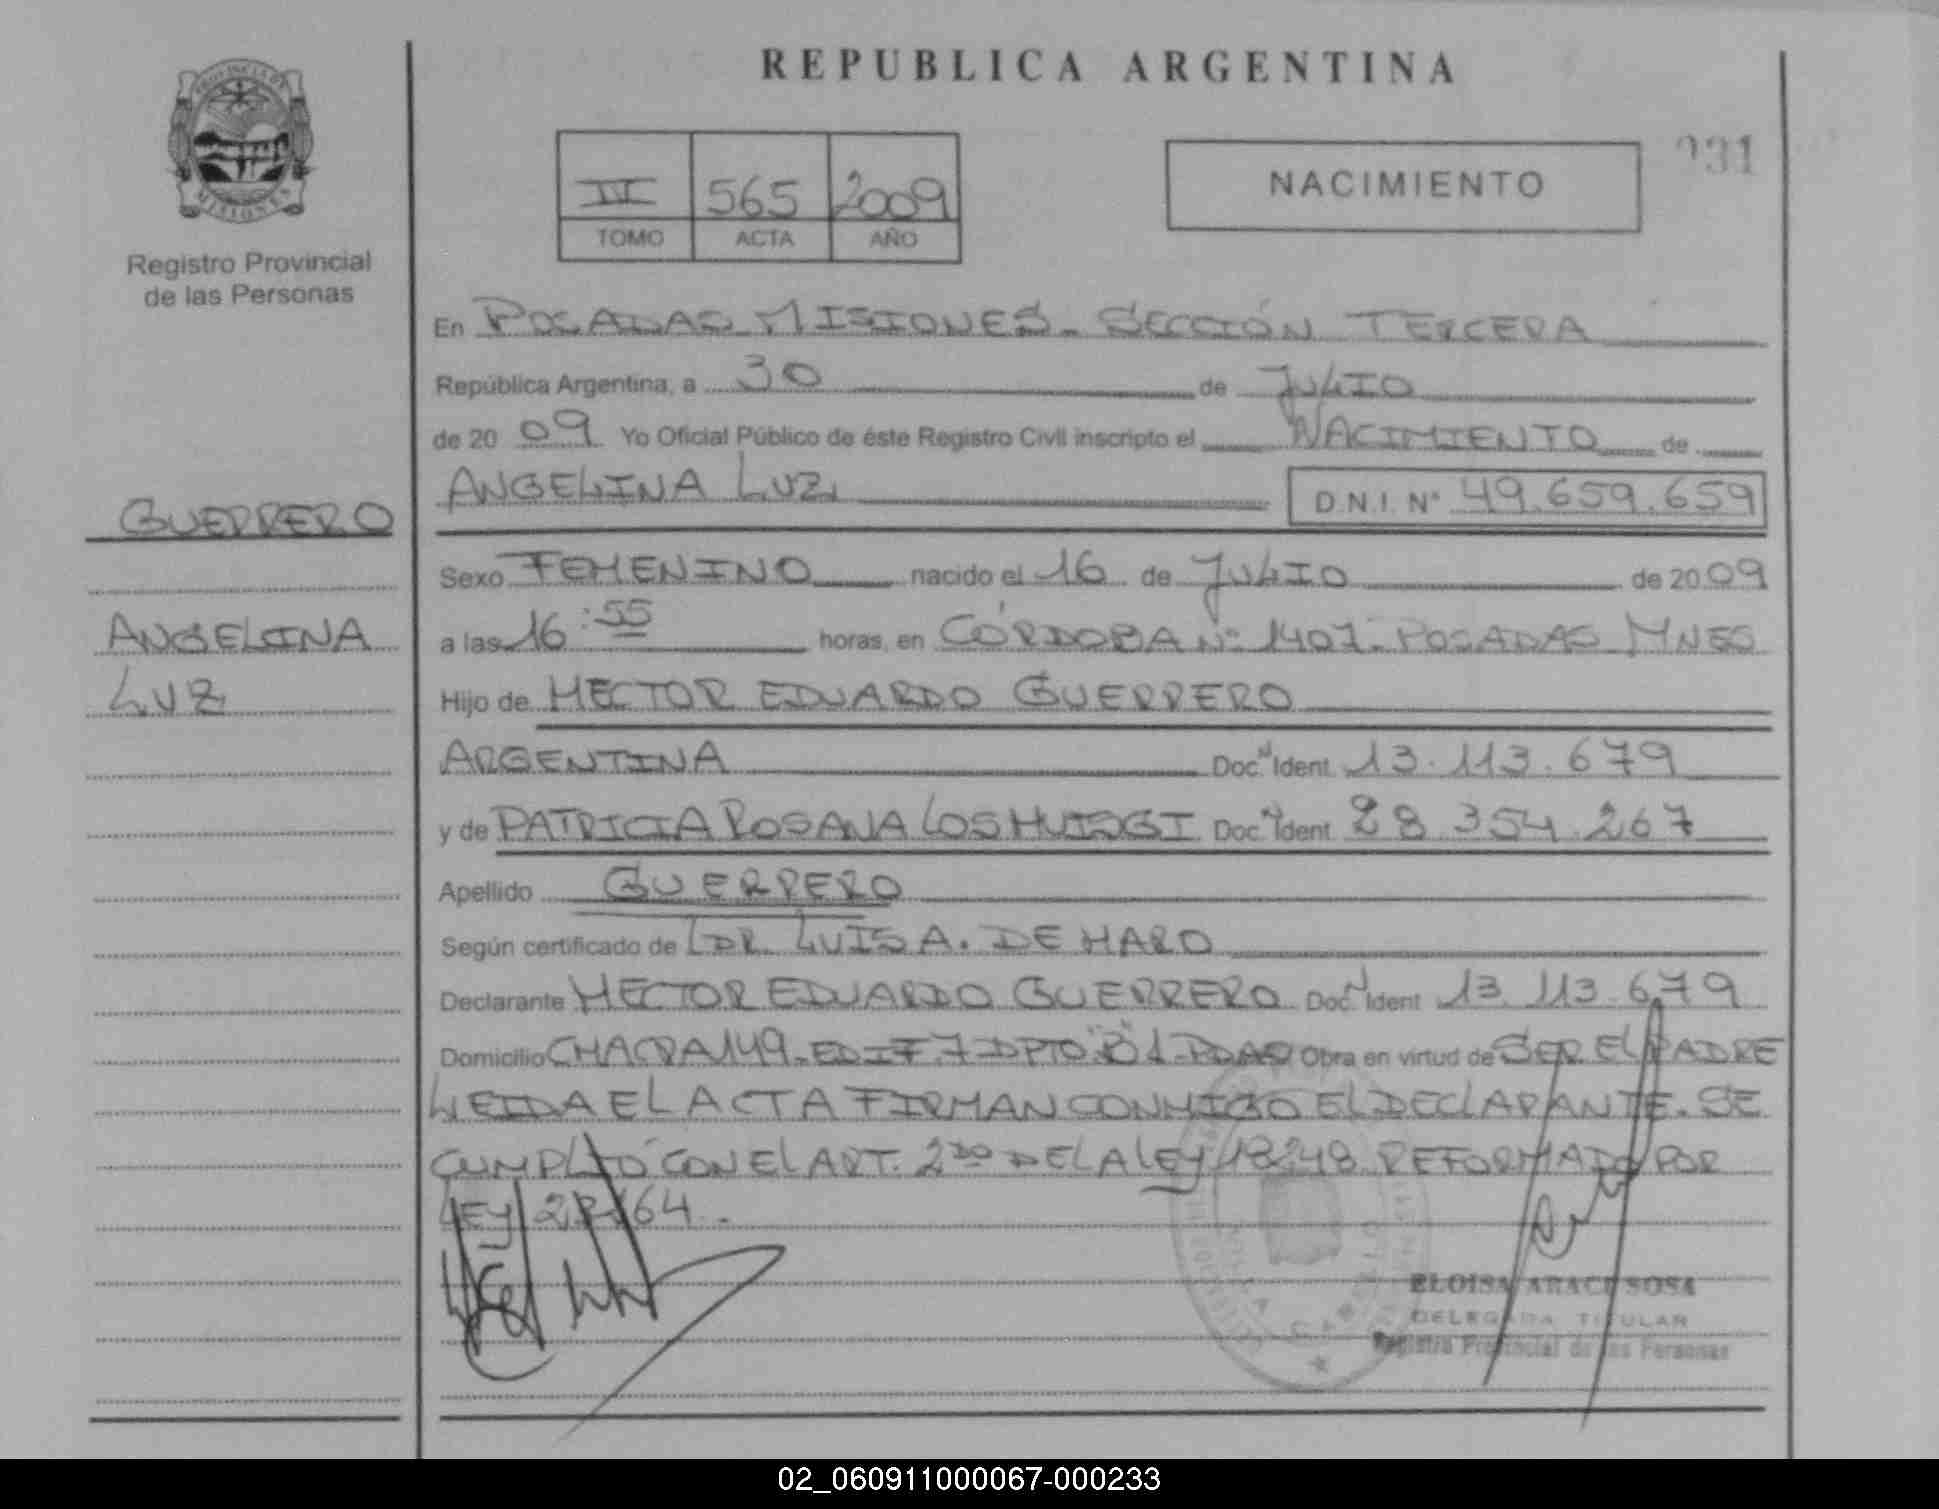 REPUBLICA ARGENTINA
PROVINCIA DE
MISIONES
Registro Provincial
de las Personas
565 2009
TOMO ACTA AÑO
NACIMIENTO
En POSADAS MISIONES - SECCIÓN TERCERA
República Argentina, a 30 de JULIO
de 20 09 Yo Oficial Público de éste Registro Civil inscripto el NACIMIENTO de
ANGELINA LUZ D.N.I. N° 49.659.659
GUERRERO
ANGELINA
LUZ
Sexo FEMENINO nacido el 16 de JULIO de 20 09
a las 16:55 horas, en CÓRDOBA N° 1407 - POSADAS MNES
Hijo de HECTOR EDUARDO GUERRERO
ARGENTINA Doc. N Ident 13.113.679
y de PATRICIA ROSANA Doc. N Ident 28.354.267
Apellido GUERRERO
Según certificado de DR. LUIS A. DE HARO
Declarante HECTOR EDUARDO GUERRERO Doc. N Ident 13.113.679
Domicilio CHACRA 149 - EDIF 7 DPTO "B" 1 - PDAS Obra en virtud de SER EL PADRE
LEIDA EL ACTA FIRMAN CONMIGO EL DECLARANTE. SE
CUMPLIÓ CON EL ART. 2DO DE LA LEY 18248 REFORMADO POR
LEY
SOSA
DELEGADA TITULAR
Registro Provincial de las Personas
02_060911000067-000233